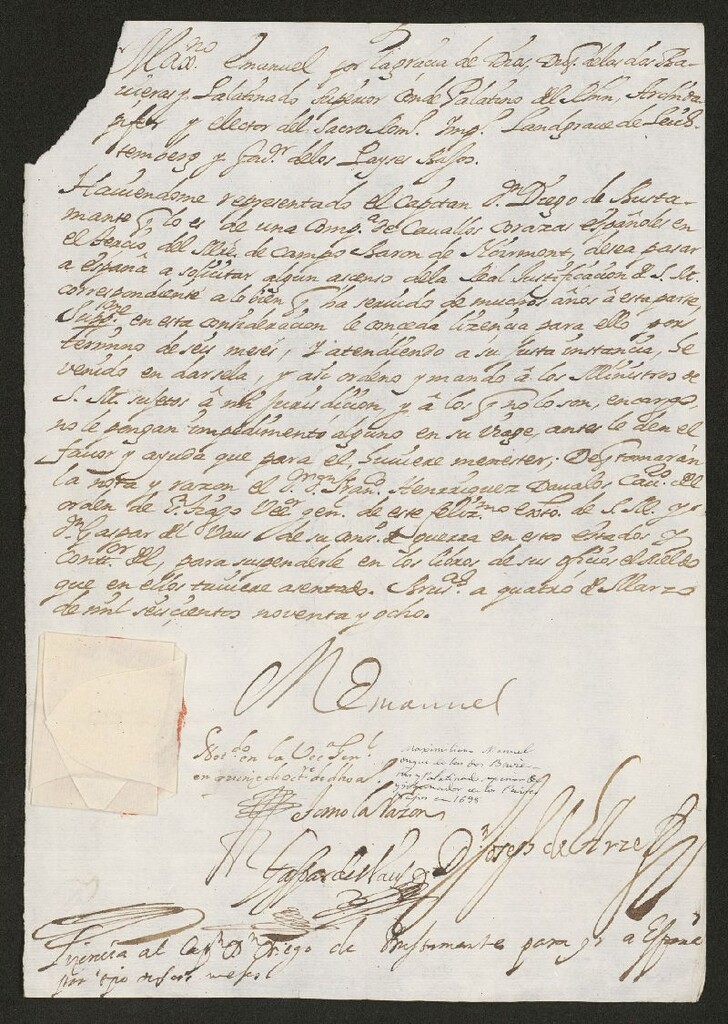 Max.no Emanuel por la gracia de Dios, Duq. de las dos Ba-
vieras y Palatinado superior Conde Palatino del Rhin, Archida-
pifer y elector del Sacro Rom.o Imp.o Landgrave de Leich-
temberg y Gov.r de los Payses Baxos.
Haviendome representado el Capitan D.n Diego de Busta-
mante q lo es de una Comp.a de Cavallos corazas españoles en
el tercio del Mro. de Campo Baron de Noirmont, desea pasar
a españa a solicitar algun ascenso de la Real Justificacion d S. M.
correspondiente a lo bien q ha servido de muchos años â esta parte,
en esta consideracion le conceda lizencia para ello por
termino de seis meses, y atendiendo a su justa instancia, he
venido en darsela, y asi ordeno y mando â los Ministros de
S. M. sujetos â mi jurisdicion, y â los q no lo son, encargo,
no le pongan impedimento alguno en su viage, antes le den el
favor y ayuda que para el, huviere menester; Desta tomarán
la nota y razon el S.r D.n Fran.co Henrriquez Davalos Cav.o del
orden de S.tiago Veed.r gen. de este feliz.mo exto. de S. M. y
D.n Gaspar del Vaus de su Cons.o d guerra en estos estados y
Cont.or del, para suspenderle en los libros de sus oficios el sueldo
que en ellos tuviere asentado. Brus.as a quatro d Marzo
de mil seiscientos noventa y ocho.
M Emanuel
Not.do en la Vee.a Gen.l
en quince de oct.re de dho a.
Maximiliano Manuel
duque de las dos Bavie-
ras y Palatinado superior &
y governador de los Paises
Bajos en 1698
Tomo la Razon
Gaspar del Vaus
D.n Joseph de Arze
Lizencia al Cap.n D.n Diego de Bustamante para yr a España
por tpo de seis meses